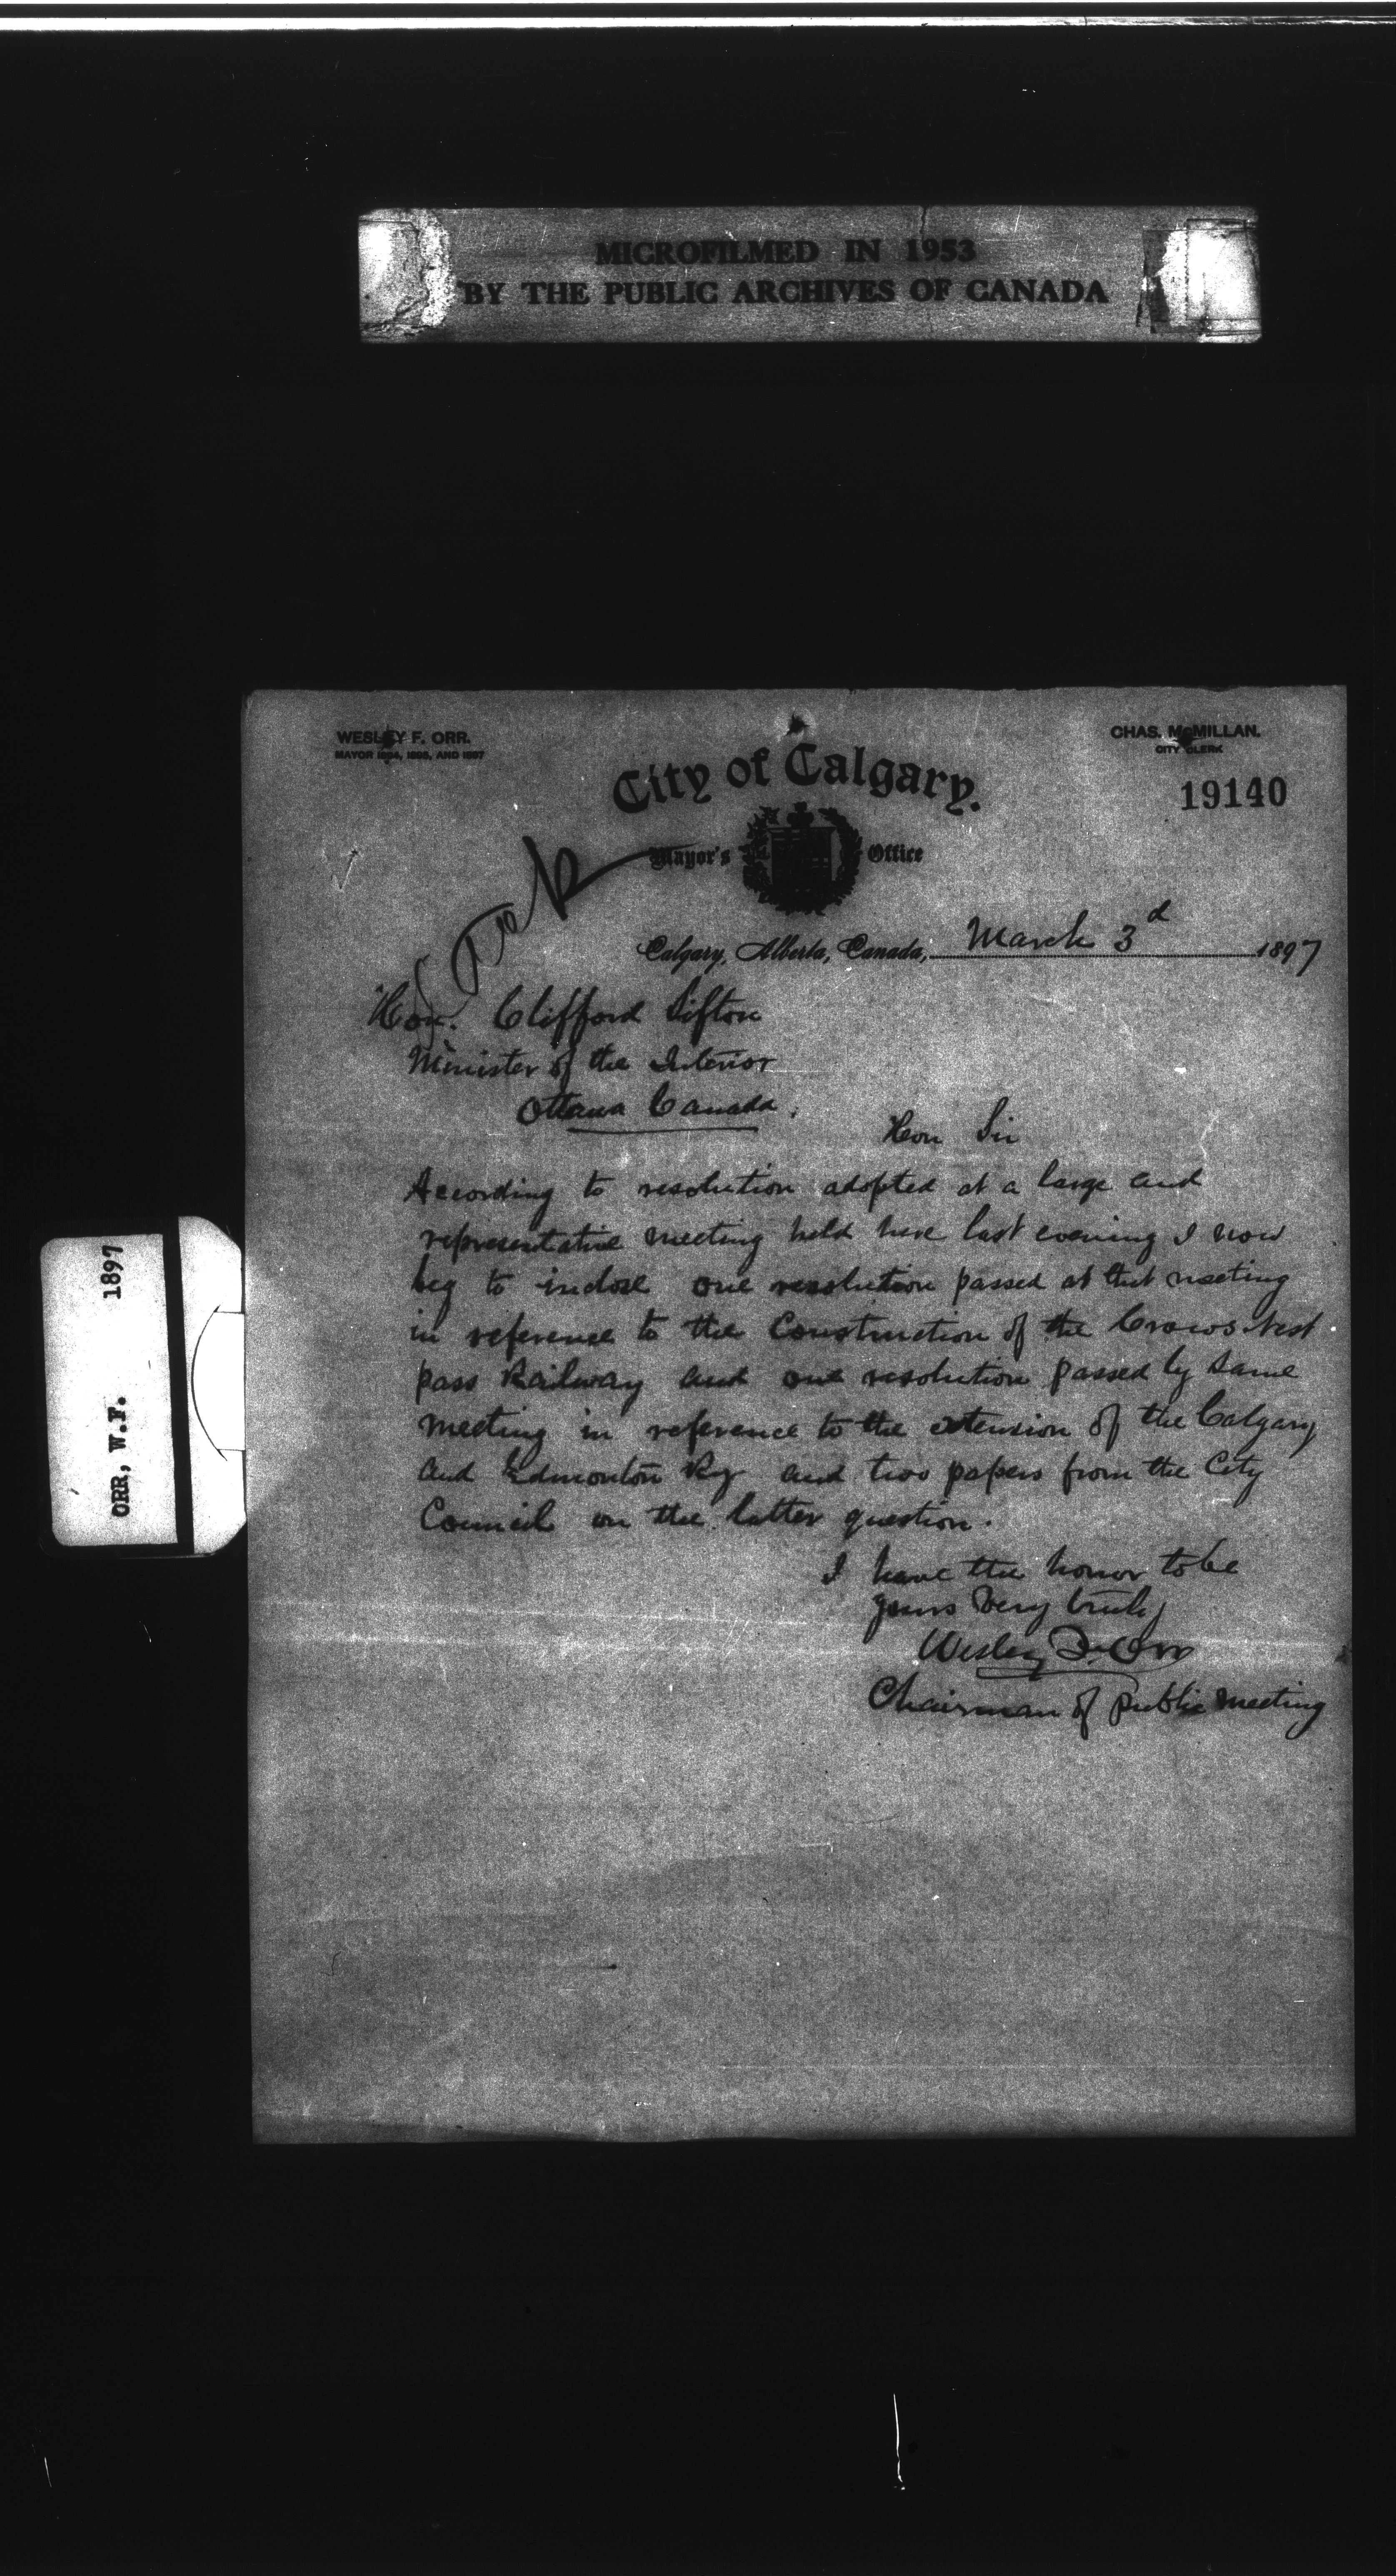 MICROFILMED IN 1953
BY THE PUBLIC ARCHIVES OF CANADA
WESLEY F. ORR.
MAYOR 1894, 1895, AND 1897
CHAS. McMILLAN.
CITY CLERK
City of Calgary.
19140
Mayor's Office
Calgary, Alberta, Canada, March 3d 1897
Hon. Clifford Sifton
Minister of the Interior
Ottawa Canada.
Hon Sir
According to resolution adopted at a large and
representative meeting held here last evening I now
beg to inclose one resolution passed at that meeting
in reference to the Construction of the Crows Nest
pass Railway and one resolution passed by same
meeting in reference to the extension of the Calgary
and Edmonton Ry and two papers from the City
Council on the latter question.
I have the honor to be
yours very truly
Wesley F. Orr
Chairman of public meeting
ORR, W.F. 1897